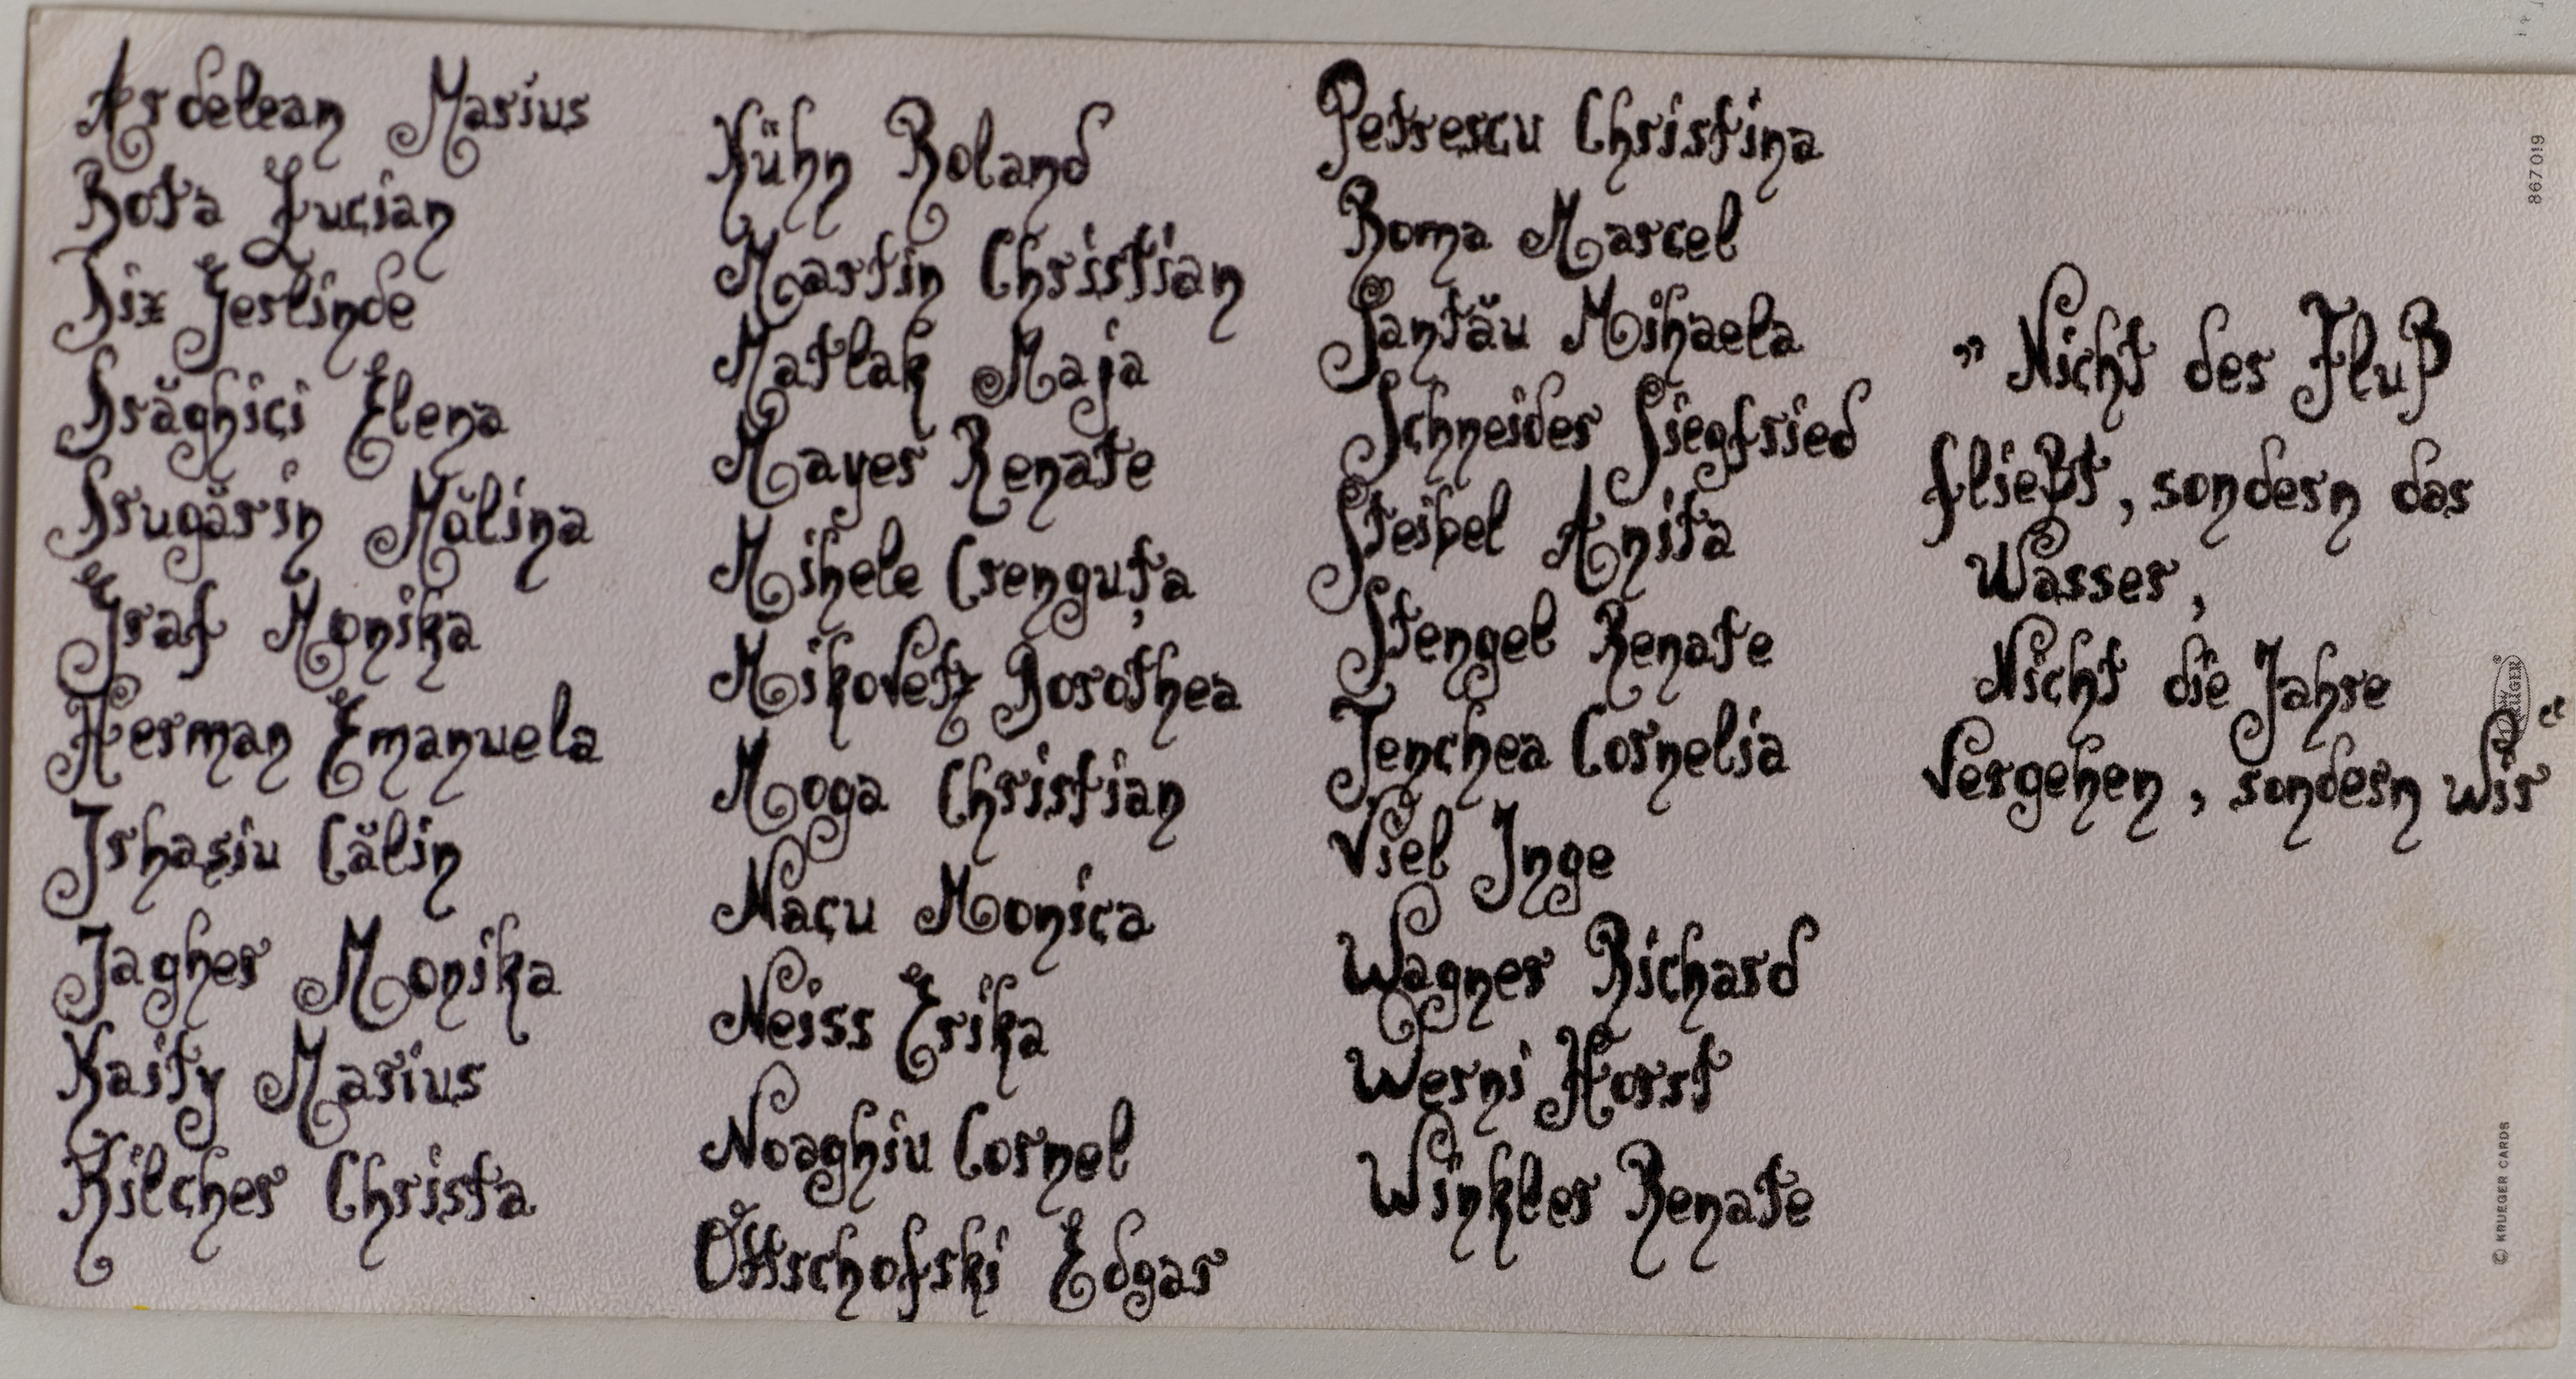 Ardelean Marius
Bota Lucian
Dix Gerlinde
Drăghici Elena
Drugărin Mălina
Graf Monika
Herman Emanuela
Ishasiu Călin
Jagher Monika
Kaity Marius
Kilcher Christa
Kühn Roland
Martin Christian
Matlak Maja
Mayer Renate
Mihele Crenguța
Mikovetz Dorothea
Moga Christian
Nacu Monica
Neiss Erika
Noaghiu Cornel
Ottschofski Edgar
Petrescu Christina
Roma Marcel
Santău Mihaela
Schneider Siegfried
Steibel Anita
Stengel Renate
Tenchea Cornelia
Viel Inge
Wagner Richard
Werni Horst
Winkler Renate
„Nicht der Fluß
fließt, sondern das
Wasser,
Nicht die Jahre
vergehen, sondern wir“
867 019
© KRUEGER CARDS